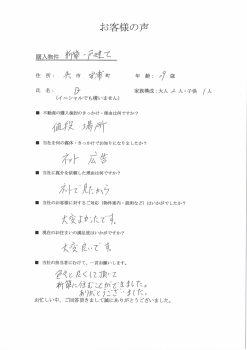 お客様の声
購入物件 新築・戸建て
住所： 市 町 年齢： 9歳
氏名： 家族構成：大人2人・子供1人
（イニシャルでも構いません）
■ 不動産の購入検討のきっかけ・理由は何ですか？
値段 場所
■ 当社を何の媒体・きっかけでお知りになりましたか？
ネット 広告
■ 当社に媒介を依頼した理由は何ですか？
ネットで見たから
■ 当社のお客様に対するご対応（物件案内・説明など）はいかがですか？
大変よかったです。
■ 現在のお住まいの満足度はいかがですか？
大変良いです。
■ 当社の担当者にむけて、一言お願いします。
色々と良くして頂いて
新築に住むことができました。
ありがとうございました。
お忙しい中、ご回答頂きまして誠にありがとうございました。